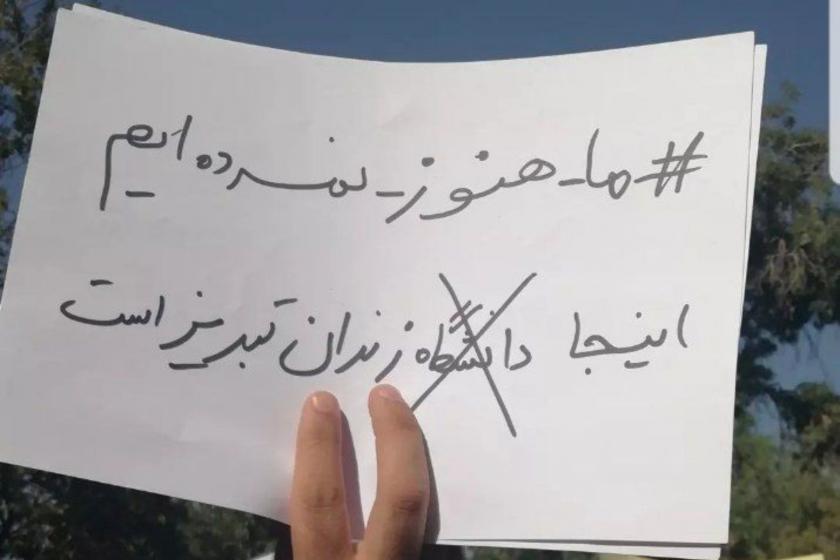 #ما_هنوز_نمرده ایم
اینجا دانشگاه زندان تبریز است